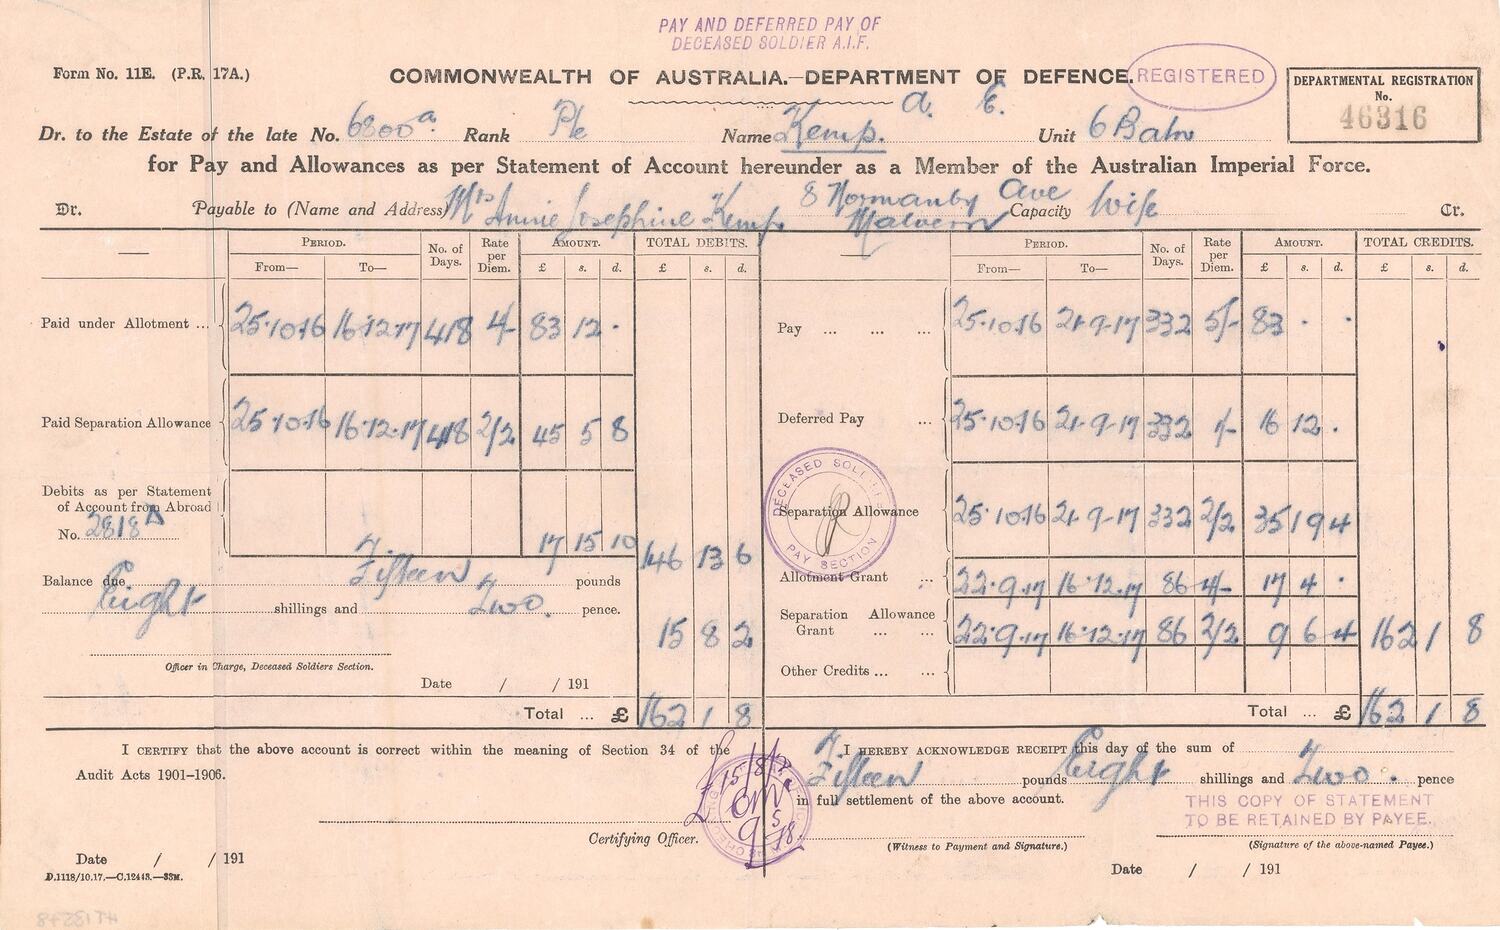 PAY AND DEFERRED PAY OF
DECEASED SOLDIER A.I.F.
Form No. 11E. (P.R. 17A.)
COMMONWEALTH OF AUSTRALIA.—DEPARTMENT OF DEFENCE.
REGISTERED
DEPARTMENTAL REGISTRATION
No.
46316
Dr. to the Estate of the late No. 6800a Rank Pte Name Kemp. A. E. Unit 6 Batn
for Pay and Allowances as per Statement of Account hereunder as a Member of the Australian Imperial Force.
Dr. Payable to (Name and Address) Mrs Annie Josephine Kemp 8 Normanby Ave Malvern Capacity Wife Cr.
PERIOD. No. of Days. Rate per Diem. AMOUNT. TOTAL DEBITS. PERIOD. No. of Days. Rate per Diem. AMOUNT. TOTAL CREDITS.
From— To— £ s. d. £ s. d. From— To— £ s. d. £ s. d.
Paid under Allotment ... 25.10.16 16.12.17 418 4/- 83 12 .
Paid Separation Allowance 25.10.16 16.12.17 418 2/2 45 5 8
Debits as per Statement
of Account from Abroad
No. 2818A 17 15 10 146 13 6
Balance due Fifteen pounds
Eight shillings and Two pence.
15 8 2
Officer in Charge, Deceased Soldiers Section.
Date / / 191
Total ... £ 162 1 8
Pay ... ... ... 25.10.16 21.9.17 332 5/- 83 . .
Deferred Pay ... 25.10.16 21.9.17 332 1/- 16 12 .
Separation Allowance 25.10.16 21.9.17 332 2/2 35 19 4
Allotment Grant ... 22.9.17 16.12.17 86 4/- 17 4 .
Separation Allowance
Grant ... ... 22.9.17 16.12.17 86 2/2 9 6 4 162 1 8
Other Credits ... ...
Total ... £ 162 1 8
DECEASED SOLDIERS
PAY SECTION
I CERTIFY that the above account is correct within the meaning of Section 34 of the
Audit Acts 1901-1906.
Certifying Officer.
Date / / 191
D.1118/10.17.—C.12443.—33M.
£15/8/2
9 5 18
I HEREBY ACKNOWLEDGE RECEIPT this day of the sum of
Fifteen pounds Eight shillings and Two. pence
in full settlement of the above account.
THIS COPY OF STATEMENT
TO BE RETAINED BY PAYEE.
(Witness to Payment and Signature.)
(Signature of the above-named Payee.)
Date / / 191